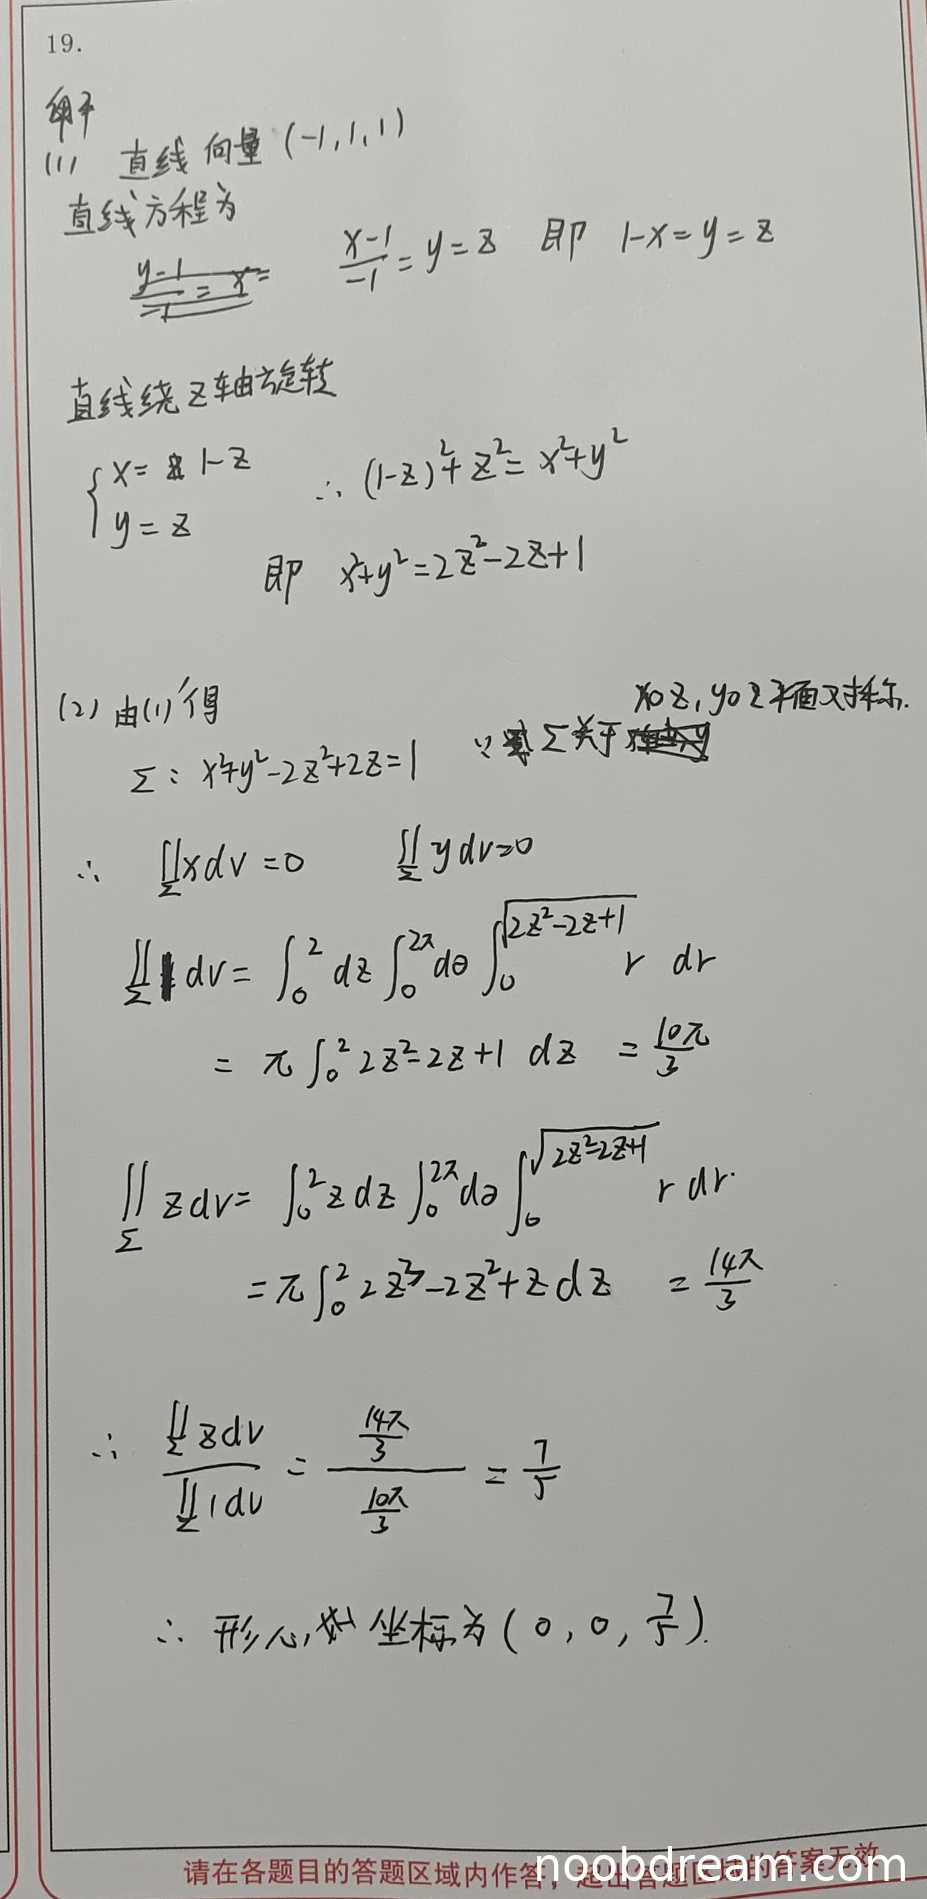 19.
解
(1) 直线向量 (-1,1,1)
直线方程为
(x-1)/(-1) = y = z 即 1-x = y = z
直线绕z轴旋转
{ x = 1-z
y = z
∴ (1-z)²+z² = x²+y²
即 x²+y² = 2z²-2z+1
(2) 由(1)得
xoz, yoz平面对称.
Σ: x²+y²-2z²+2z=1 ∵ Σ关于
∴ ∬_Σ x dv = 0 ∬_Σ y dv = 0
∬_Σ 1 dv = ∫₀² dz ∫₀^{2π} dθ ∫₀^{√(2z²-2z+1)} r dr
= π ∫₀² 2z²-2z+1 dz = 10π/3
∬_Σ z dv = ∫₀² z dz ∫₀^{2π} dθ ∫₀^{√(2z²-2z+1)} r dr.
= π ∫₀² 2z³-2z²+z dz = 14π/3
∴ ∬_Σ z dv / ∬_Σ 1 dv = (14π/3) / (10π/3) = 7/5
∴ 形心坐标为 (0, 0, 7/5).
请在各题目的答题区域内作答，超出答题区域的答案无效
noobdream.com